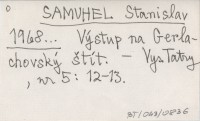 SAMUHEL Stanislav
1968... Výstup na Gerla-
chovský štít. - Vys.Tatry
, nr 5: 12-13.
BT/063/0836